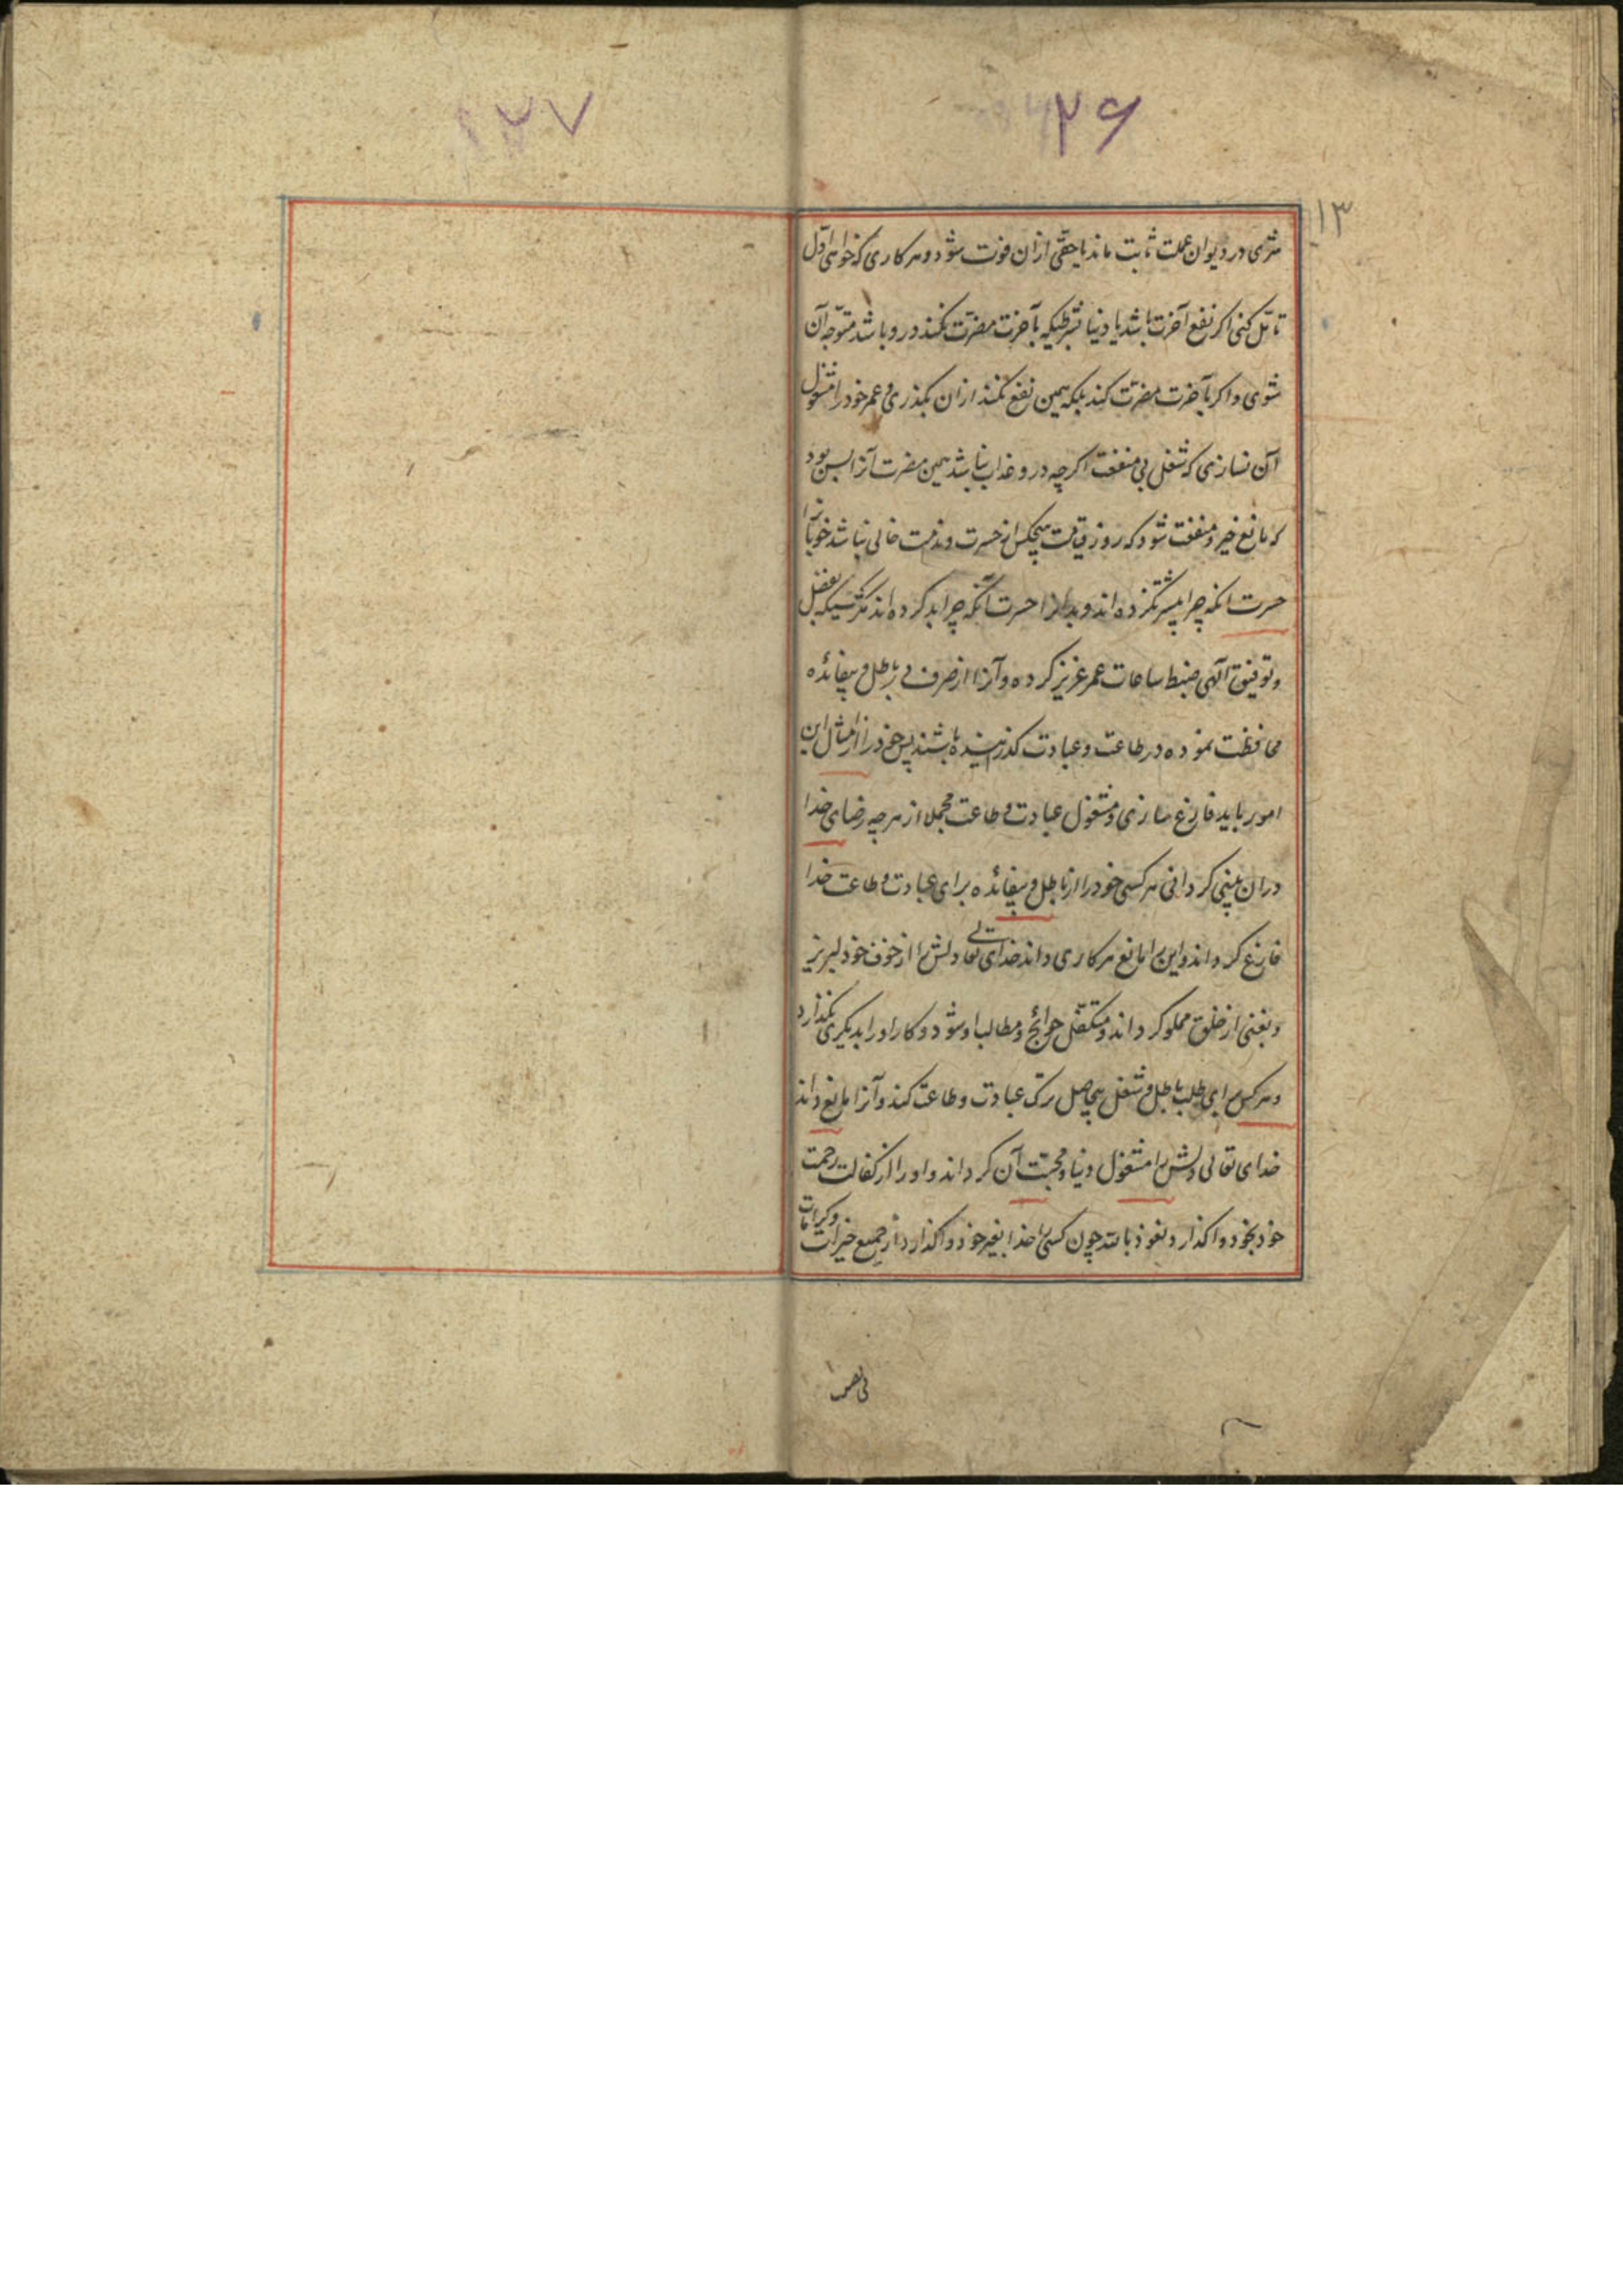 ۲۶
۲۷
۱۳
شری در دیوان عملت ثابت ماند یا حقی ازان فوت شود و هر کاری که خواهی اول
تامّل کنی اکر نفع آخرت باشد یا دنیا بشرطیکه بآخرت مضرّت نکند درو باشد متوجّه آن
شوی و اکر بآخرت مضرّت کند بلکه همین نفع نکند ازان بکذری و عمر خود را مشغول
آن نسازی که شغل بی منفعت اکرچه درو عذاب نباشد همین مضرت آنرا بس بود
که مانع خیر و منفعت شود که روز قیامت هیچکس از حسرت و ندامت خالی نباشد خوبانرا
حسرت آنکه چرا بیشتر نکرده اند و بدانرا حسرت آنکه چرا بد کرده اند مکر کسیکه بفضل
و توفیق آلهی ضبط ساعات عمر عزیز کرده و آنرا از صرف در باطل و بیفائده
محافظت نموده در طاعت و عبادت کذرانیده باشند پس خود را از امثال این
امور باید فارغ سازی و مشغول عبادت و طاعت مجملا از هرچه رضای خدا
دران بینی کردانی هر کسی خود را از باطل و بیفائده برای عبادت و طاعت خدا
فارغ کرداند و این را مانع هر کاری داند خدای تعالی دلش را از خوف خود لبریز
و بغنی از خلق مملو کرداند و متکفّل حوائج و مطالب او شود و کار او را بدیکری نکذارد
و هر کس برای طلب باطل و شغل بیحاصل ترک عبادت و طاعت کند و آنرا مانع داند
خدای تعالی دلش را مشغول دنیا و محبّت آن کرداند و او را از کفالت رحمت
خود بخود واکذارد نعوذ بالله چون کسی را خدا بغیر خود واکذارد از جمیع خیرات و کرامات